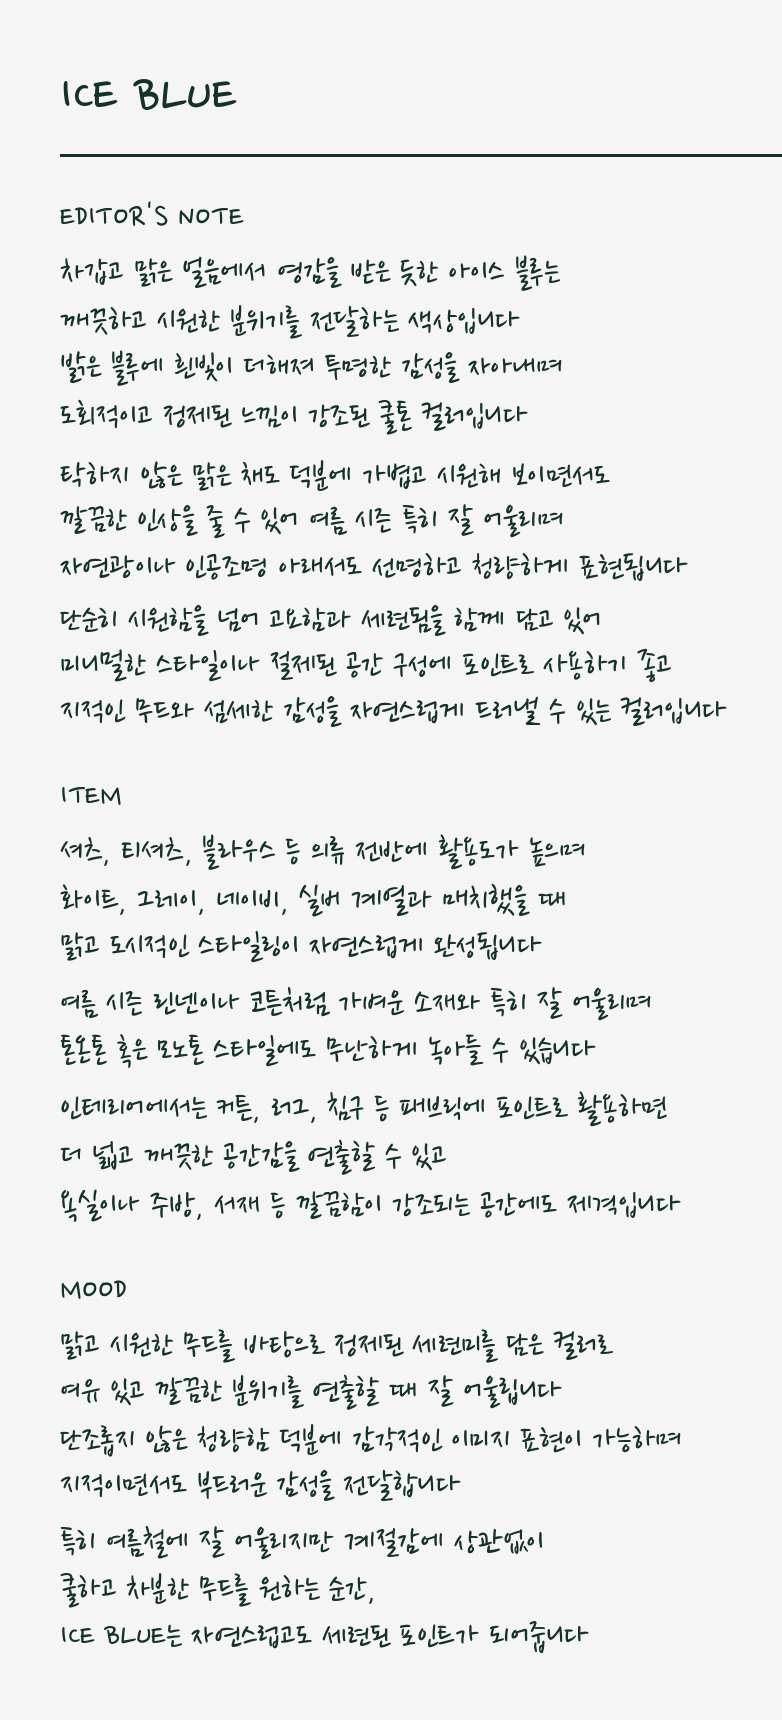 ICE BLUE
EDITOR'S NOTE
차갑고 맑은 얼음에서 영감을 받은 듯한 아이스 블루는
깨끗하고 시원한 분위기를 전달하는 색상입니다
밝은 블루에 흰빛이 더해져 투명한 감성을 자아내며
도회적이고 정제된 느낌이 강조된 쿨톤 컬러입니다
탁하지 않은 맑은 채도 덕분에 가볍고 시원해 보이면서도
깔끔한 인상을 줄 수 있어 여름 시즌 특히 잘 어울리며
자연광이나 인공조명 아래서도 선명하고 청량하게 표현됩니다
단순히 시원함을 넘어 고요함과 세련됨을 함께 담고 있어
미니멀한 스타일이나 절제된 공간 구성에 포인트로 사용하기 좋고
지적인 무드와 섬세한 감성을 자연스럽게 드러낼 수 있는 컬러입니다
ITEM
셔츠, 티셔츠, 블라우스 등 의류 전반에 활용도가 높으며
화이트, 그레이, 네이비, 실버 계열과 매치했을 때
맑고 도시적인 스타일링이 자연스럽게 완성됩니다
여름 시즌 린넨이나 코튼처럼 가벼운 소재와 특히 잘 어울리며
톤온톤 혹은 모노톤 스타일에도 무난하게 녹아들 수 있습니다
인테리어에서는 커튼, 러그, 침구 등 패브릭에 포인트로 활용하면
더 넓고 깨끗한 공간감을 연출할 수 있고
욕실이나 주방, 서재 등 깔끔함이 강조되는 공간에도 제격입니다
MOOD
맑고 시원한 무드를 바탕으로 정제된 세련미를 담은 컬러로
여유 있고 깔끔한 분위기를 연출할 때 잘 어울립니다
단조롭지 않은 청량함 덕분에 감각적인 이미지 표현이 가능하며
지적이면서도 부드러운 감성을 전달합니다
특히 여름철에 잘 어울리지만 계절감에 상관없이
쿨하고 차분한 무드를 원하는 순간,
ICE BLUE는 자연스럽고도 세련된 포인트가 되어줍니다